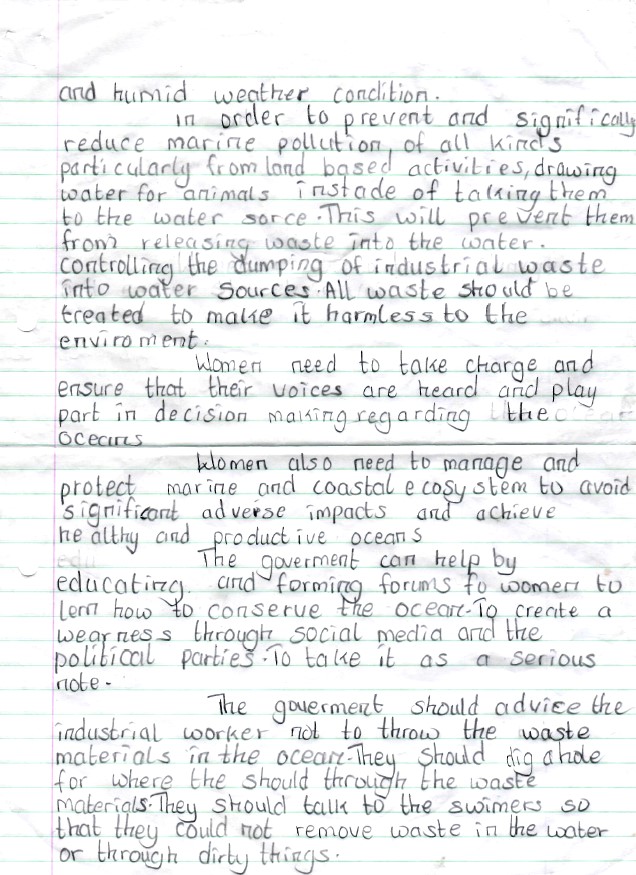 and humid weather condition.
in order to prevent and significally
reduce marine pollution, of all kinds
particularly from land based activities, drawing
water for animals instade of talking them
to the water sorce. This will prevent them
from releasing waste into the water.
controlling the dumping of industrial waste
into water sources. All waste should be
treated to make it harmless to the
enviroment.
Women need to take charge and
ensure that their voices are heard and play
part in decision making regarding the
oceans
Women also need to manage and
protect marine and coastal ecosystem to avoid
significant adverse impacts and achieve
healthy and productive oceans
The goverment can help by
educating. and forming forums fo women to
lern how to conserve the ocean. To create a
wearness through social media and the
political parties. To take it as a serious
note.
The goverment should advice the
industrial worker not to throw the waste
materials in the ocean. They should dig a hole
for where the should through the waste
materials. They should talk to the swimers so
that they could not remove waste in the water
or through dirty things.